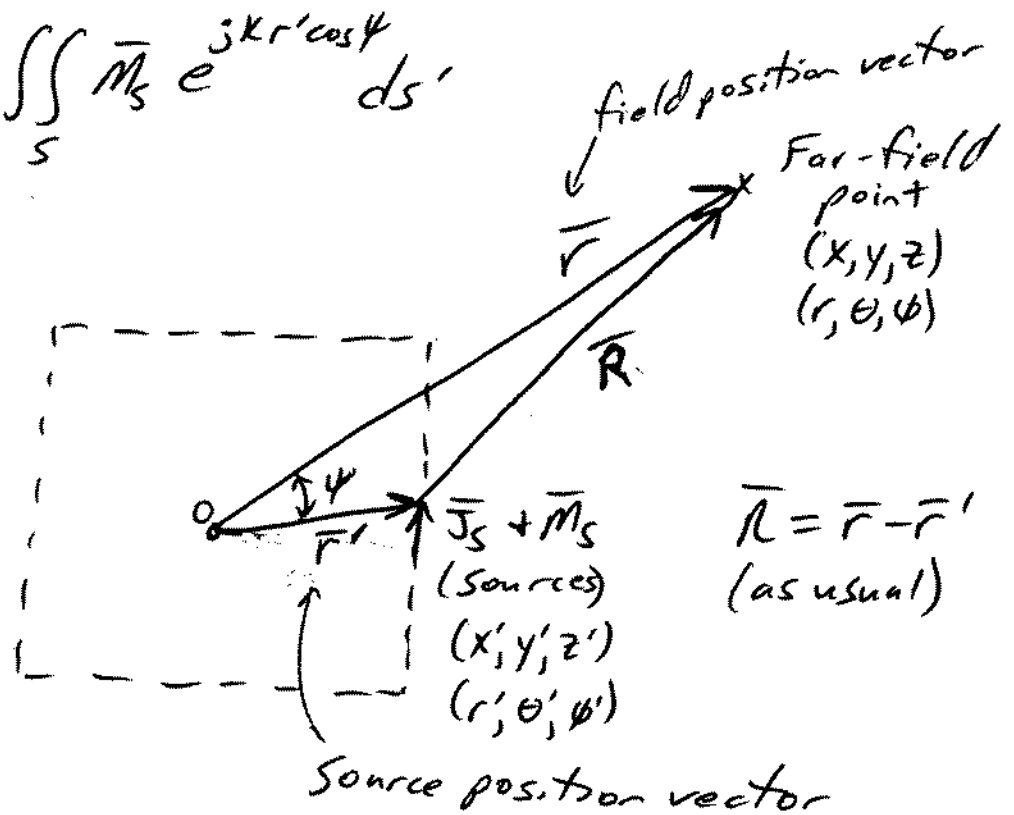 ∬_S M̄_S e^{jkr′cosψ} ds′
field position vector
Far-field
point
(x, y, z)
(r, θ, φ)
r̄
R̄
ψ
O
r̄′
J̄_S + M̄_S
(sources)
(x′, y′, z′)
(r′, θ′, φ′)
R̄ = r̄ − r̄′
(as usual)
Source position vector